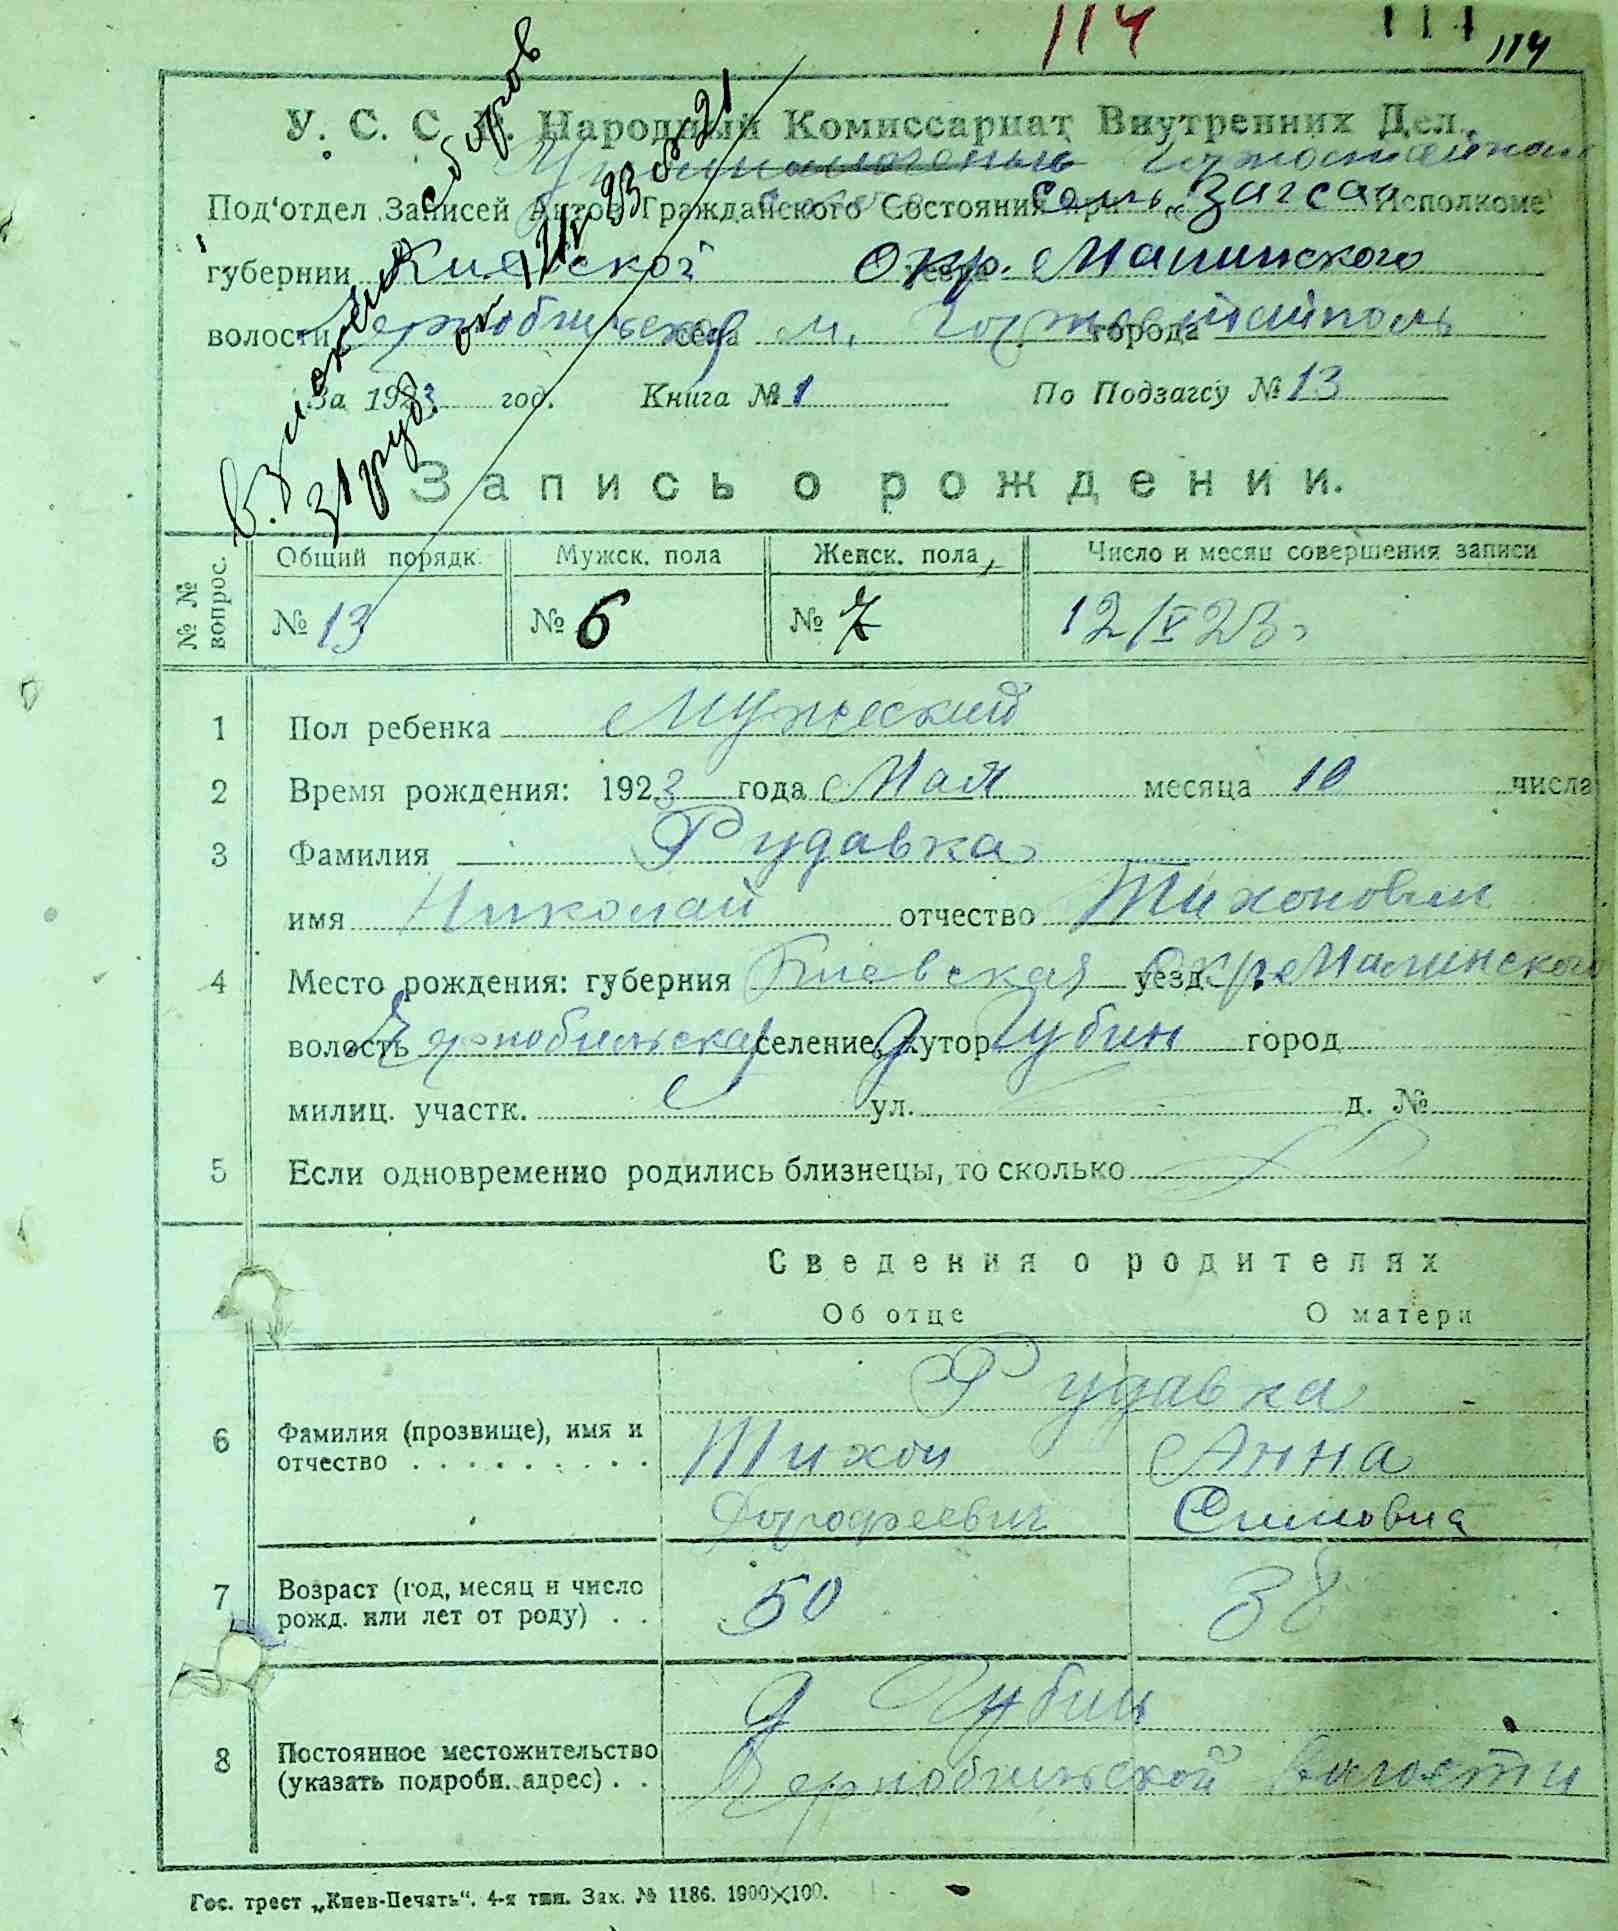 114 111 114
У. С. С. Р. Народный Комиссариат Внутренних Дел.
Под'отдел Записей Актов Гражданского Состояния при Сель „Загса" Исполкоме
губернии Киевской уезда Окр. Малинского
волости Чернобильской села м. Горностайполь города
За 1923 год. Книга № 1 По Подзагсу № 13
взыскано сбиров
31 руб. от 12/V 23 в 21
Запись о рождении.
№ № вопрос. Общий порядк. Мужск. пола Женск. пола Число и месяц совершения записи
№ 13 № 6 № 7 12/V 23
1 Пол ребенка Мужеский
2 Время рождения: 1923 года Мая месяца 10 числа
3 Фамилия Рудавка
имя Николай отчество Тихонович
4 Место рождения: губерния Киевская уезд Окр. Малинского
волость Чернобильская селение, хутор д Губин город
милиц. участк. ул. д. №
5 Если одновременно родились близнецы, то сколько
Сведения о родителях
Об отце О матери
Рудавка
6 Фамилия (прозвище), имя и Тихон Анна
отчество . . . . . . . . . Дорофеевич Симовна
7 Возраст (год, месяц и число 50 38
рожд. или лет от роду) . .
д Губин
8 Постоянное местожительство Чернобильской Волости
(указать подробн. адрес) . .
Гос. трест „Киев-Печать". 4-я тип. Зак. № 1186. 1900×100.